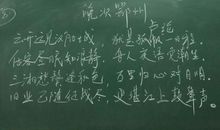 晚次鄂州
卢纶
云开远见汉阳城，犹是孤帆一日程。
估客昼眠知浪静，舟人夜语觉潮生。
三湘愁鬓逢秋色，万里归心对月明。
旧业已随征战尽，更堪江上鼓鼙声。